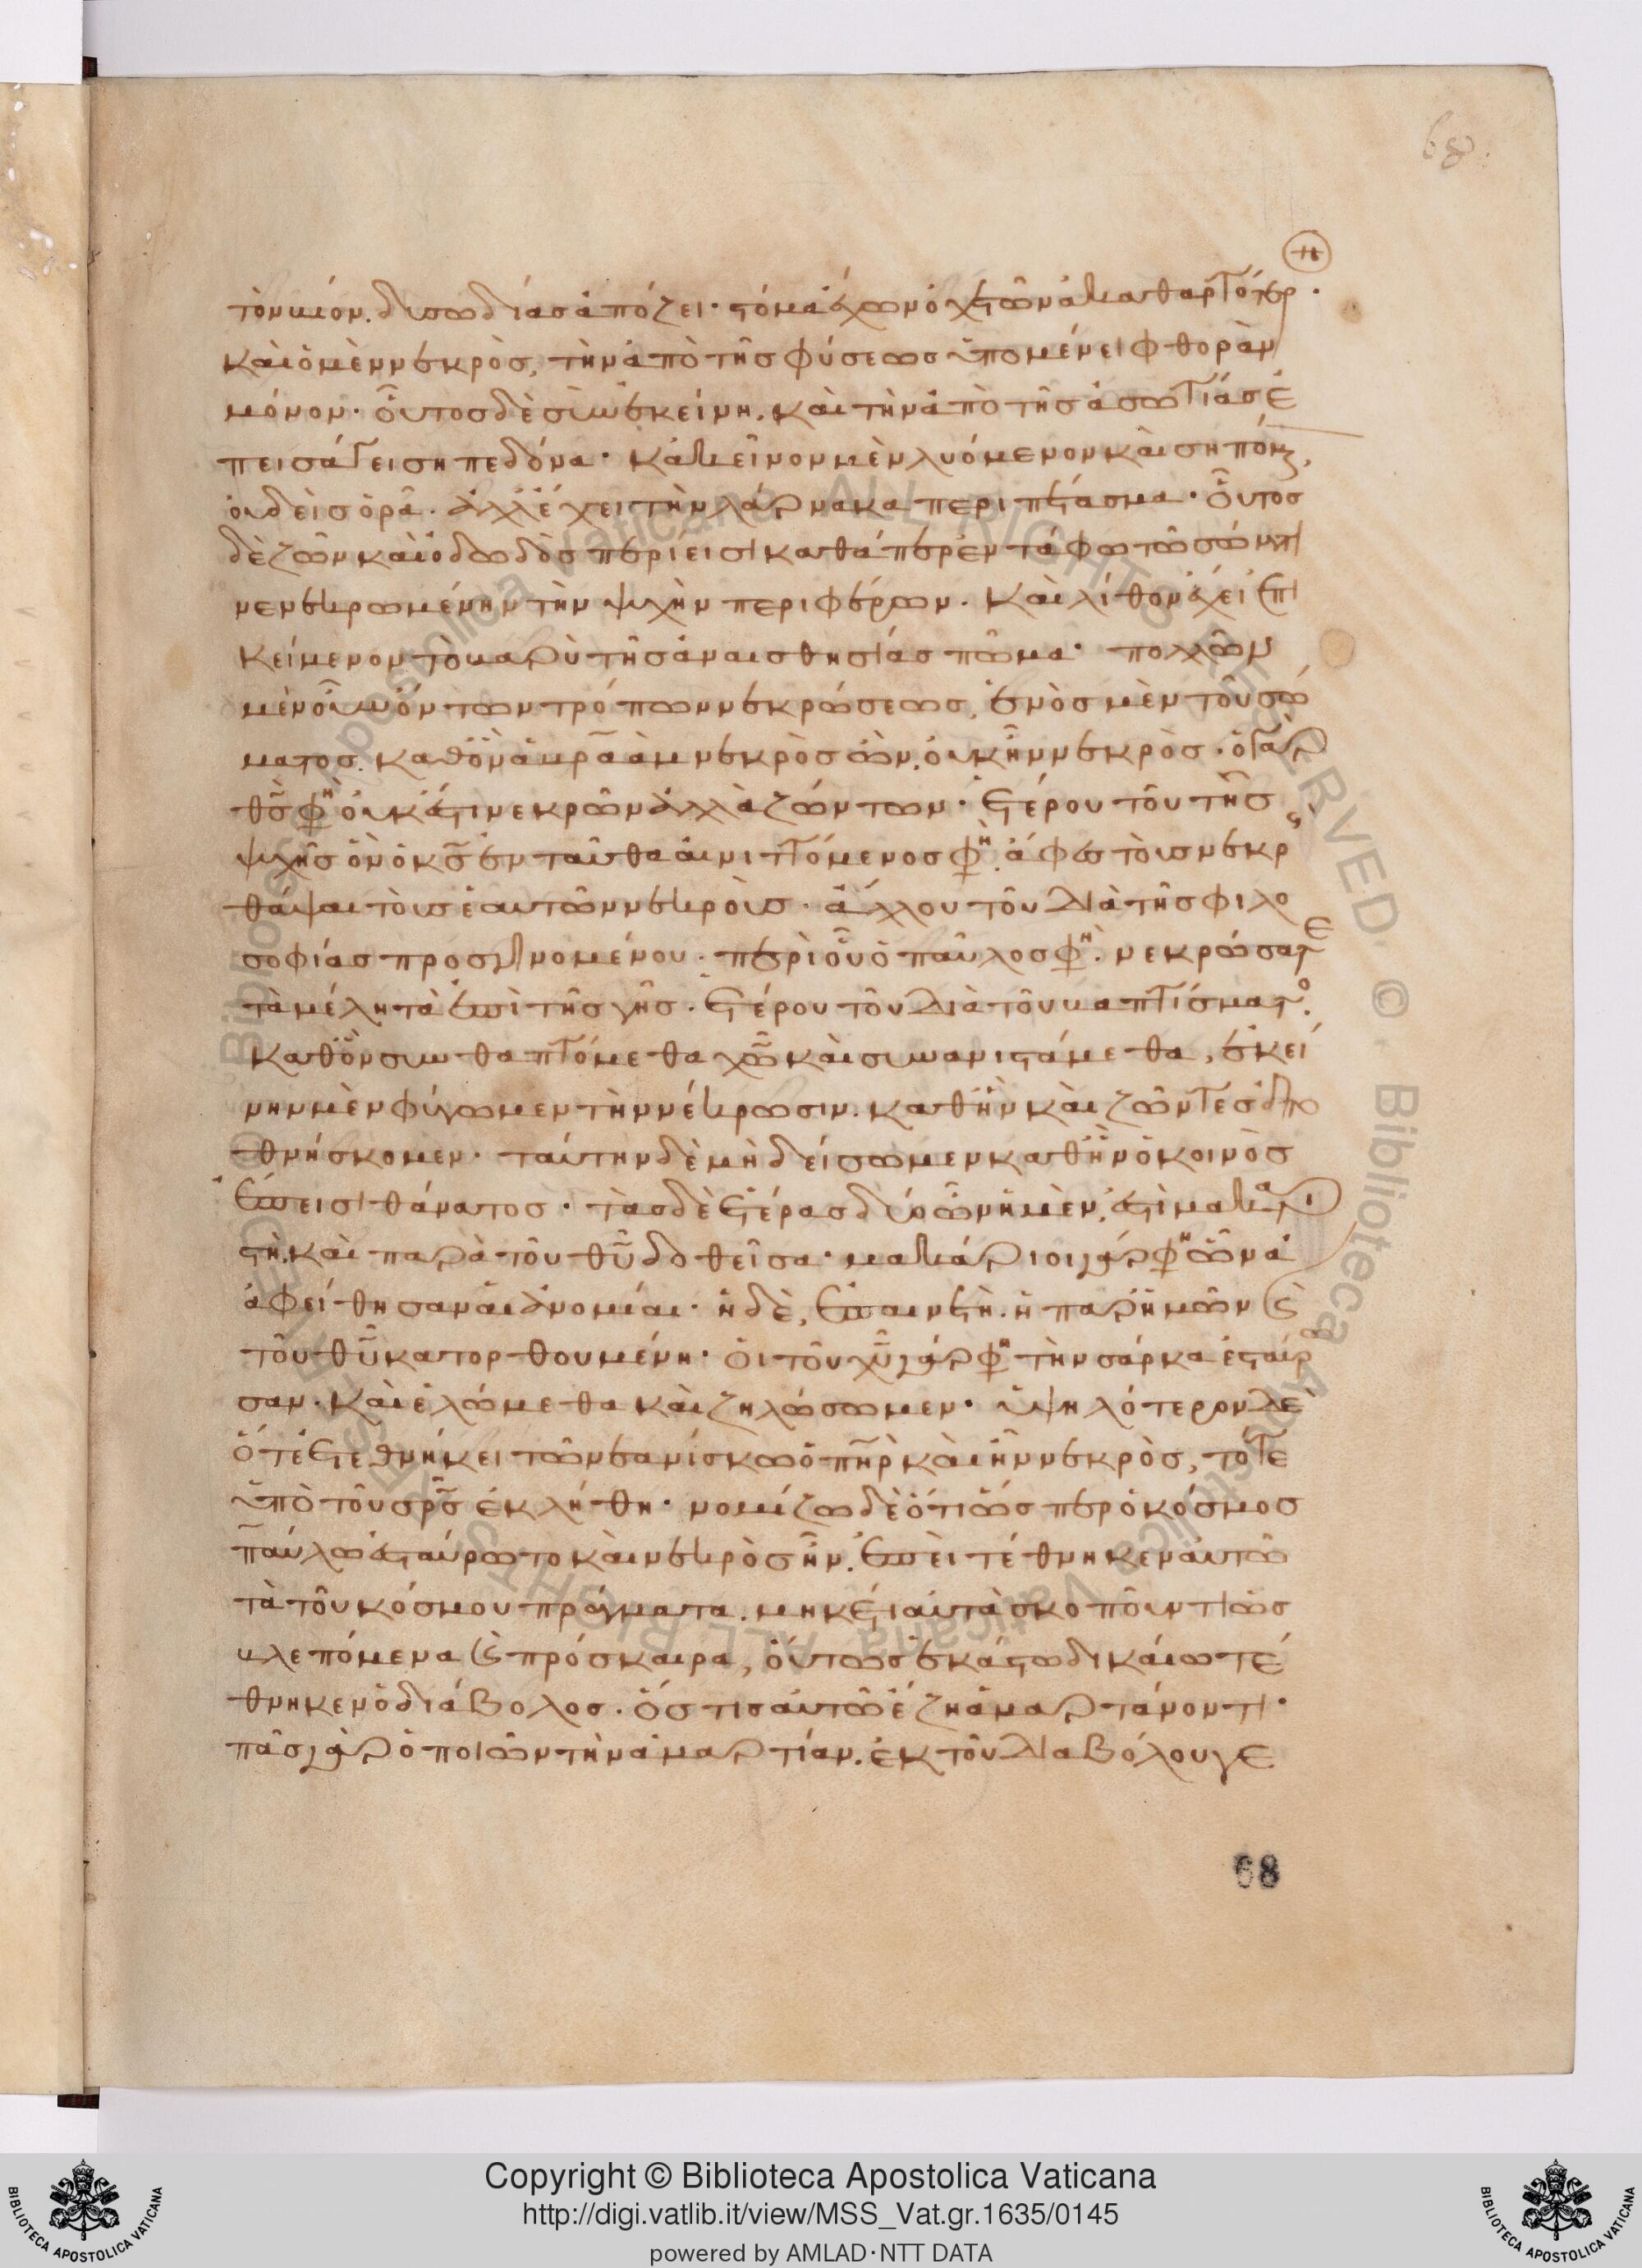 68
τὸν βίον. δυσωδίας ἀπόζει· στόμα ἔχων ὀχετῶν ἀκαθαρτότερ·
καὶ ὁ μὲν νεκρὸς, τὴν ἀπὸ τῆς φύσεως ὑπομένει φθορὰν
μόνον· οὗτος δὲ σὺν ἐκείνη. καὶ τὴν ἀπὸ τῆς ἀσωτίας ἐ
πεισάγει σηπεδόνα· κἀκεῖνον μὲν λυόμενον καὶ σηπόμ,
οὐδεὶς ὁρᾶ. ἀλλ' ἔχει τὴν λάρνακα περιπέτασμα· οὗτος
δὲ ζῶν καὶ ὀδωδὸς περίεισι καθάπερ ἐν τάφω τῶ σώματι
νενεκρωμένην τὴν ψυχὴν περιφέρων. καὶ λίθον ἔχει ἐπι
κείμενον τὸ βαρὺ τῆς ἀναισθησίας πῶμα· πολλῶν
μὲν οὖν ὄντων τρόπων νεκρώσεως, ἑνὸς μὲν τοῦ σώ
ματος. καθ' ὃν ἀβραὰμ νεκρὸς ὢν. οὐκ ἦν νεκρὸς· ὁ γὰρ
θς φη οὐκ ἔστι νεκρῶν ἀλλὰ ζώντων· ἑτέρου τοῦ τῆς
ψυχῆς ὃν ὁ κς ἐνταῦθα αἰνιττόμενος φη. ἄφες τοὺς νεκρ
θάψαι τοὺς ἑαυτῶν νεκροὺς. ἄλλου τοῦ διὰ τῆς φιλο
σοφίας προσγινομένου. περὶ οὗ ὁ παῦλος φη. νεκρώσατε
τὰ μέλη τὰ ἐπὶ τῆς γῆς. ἑτέρου τοῦ διὰ τοῦ βαπτίσματο.
καθ' ὃν συνθαπτόμεθα χω καὶ συνανιστάμεθα, ἐκεί
νην μὲν φύγωμεν τὴν νέκρωσιν. καθ' ἣν καὶ ζῶντες ἀπο
θνήσκομεν· ταύτην δὲ μὴ δείσωμεν καθ' ἣν ὁ κοινὸς
ἔπεισι θάνατος· τὰς δὲ ἑτέρας δύο ὧν ἡ μὲν, ἐστὶ μακαρι
στὴ. καὶ παρὰ τοῦ θυ δοθεῖσα· μακάριοι γάρ φη ὧν ἀ
ἀφείθησαν αἱ ἀνομίαι· ἡ δὲ, ἐπαινετὴ. ἡ παρ' ἡμῶν καὶ
τοῦ θυ κατορθουμένη· οἱ τοῦ χυ γάρ φη τὴν σάρκα ἐσταύρω
σαν· καὶ ἑλώμεθα καὶ ζηλώσωμεν· ὑψηλότερον δὲ
ὅτε ἐτεθνήκει τῶ νεανίσκω ὁ πηρ καὶ ἦν νεκρὸς, τότε
ὑπὸ τοῦ σρς ἐκλήθη· νομίζω δὲ ὅτι ὥσπερ ὁ κόσμος
παύλω ἐσταύρωτο καὶ νεκρὸς ἦν. ἐπεὶ τέθνηκεν αὐτῶ
τὰ τοῦ κόσμου πράγματα. μηκέτι αὐτὰ σκοποῦντι ὡς
βλεπόμενα καὶ πρόσκαιρα, οὕτως ἑκάστω δικαίω τέ
θνηκεν ὁ διάβολος. ὅστις αὐτῶ ἔζη ἁμαρτάνοντι·
πᾶς γὰρ ὁ ποιῶν τὴν ἁμαρτίαν. ἐκ τοῦ διαβόλου γε
68
Copyright © Biblioteca Apostolica Vaticana
http://digi.vatlib.it/view/MSS_Vat.gr.1635/0145
powered by AMLAD·NTT DATA